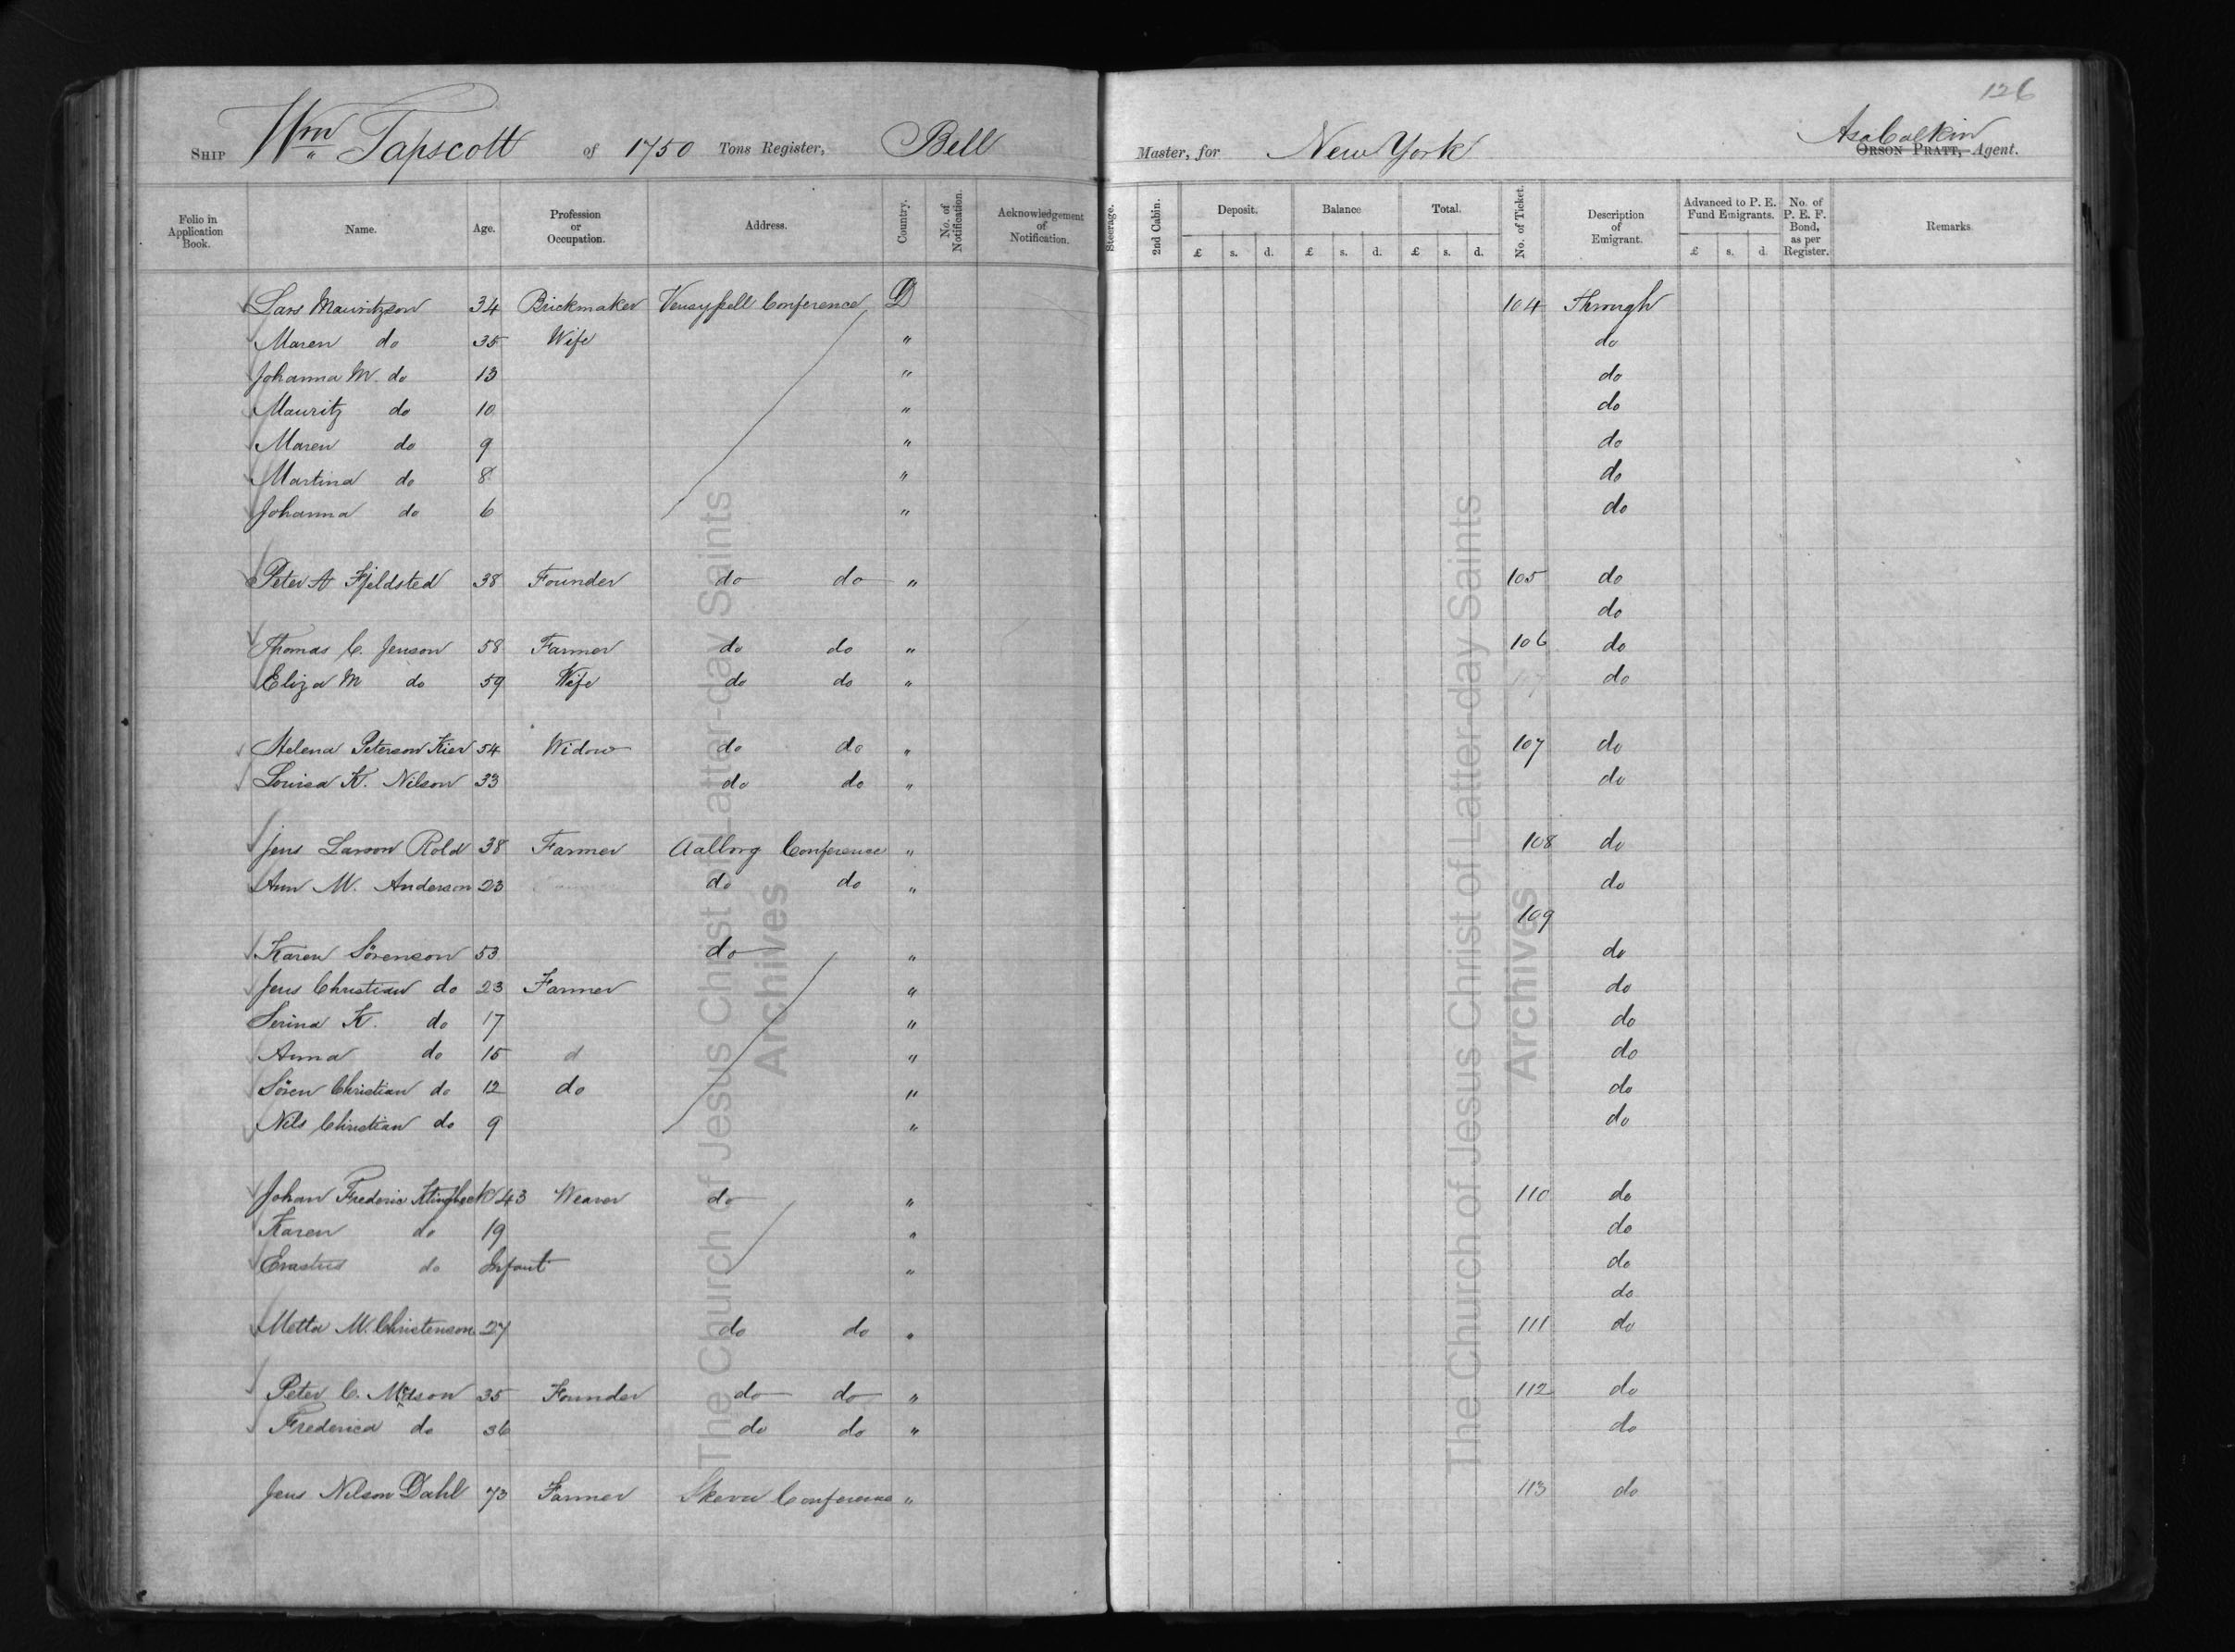 126
Ship Wm Tapscott of 1750 Tons Register, Bell Master, for New York Asa Calkin Orson Pratt, Agent.
Folio in Application Book. Name. Age. Profession or Occupation. Address. Country. No. of Notification. Acknowledgement of Notification. Steerage. 2nd Cabin. Deposit. Balance Total. No. of Ticket. Description of Emigrant. Advanced to P. E. Fund Emigrants. No. of P. E. F. Bond, as per Register. Remarks
£ s. d. £ s. d. £ s. d. £ s. d.
Lars Mauritzson 34 Brickmaker Vensyssell Conference D 104 Through
Maren do 35 Wife " do
Johanna M. do 13 " do
Mauritz do 10 " do
Maren do 9 " do
Martina do 8 " do
Johanna do 6 " do
Peter A Fjeldsted 38 Founder do do " 105 do
do
Thomas C. Jenson 58 Farmer do do " 106 do
Eliza M do 59 Wife do do " do
Helena Peterson Kier 54 Widow do do " 107 do
Louisa K. Nilson 33 do do " do
Jens Larson Rold 38 Farmer Aalborg Conference " 108 do
Ann M. Anderson 23 do do " do
109
Karen Sörenson 53 do " do
Jens Christian do 23 Farmer " do
Serina K. do 17 " do
Anna do 15 d " do
Sören Christian do 12 do " do
Nils Christian do 9 " do
Johan Frederic Klingbeck 43 Weaver do " 110 do
Karen do 19 " do
Erastus do Infant " do
do
Metta M. Christenson 27 do do " 111 do
Peter C. 35 Founder do do " 112 do
Frederica do 36 do do " do
Jens Nilson Dahl 73 Farmer Skeva Conference " 113 do
The Church of Jesus Christ of Latter-day Saints
Archives
The Church of Jesus Christ of Latter-day Saints
Archives